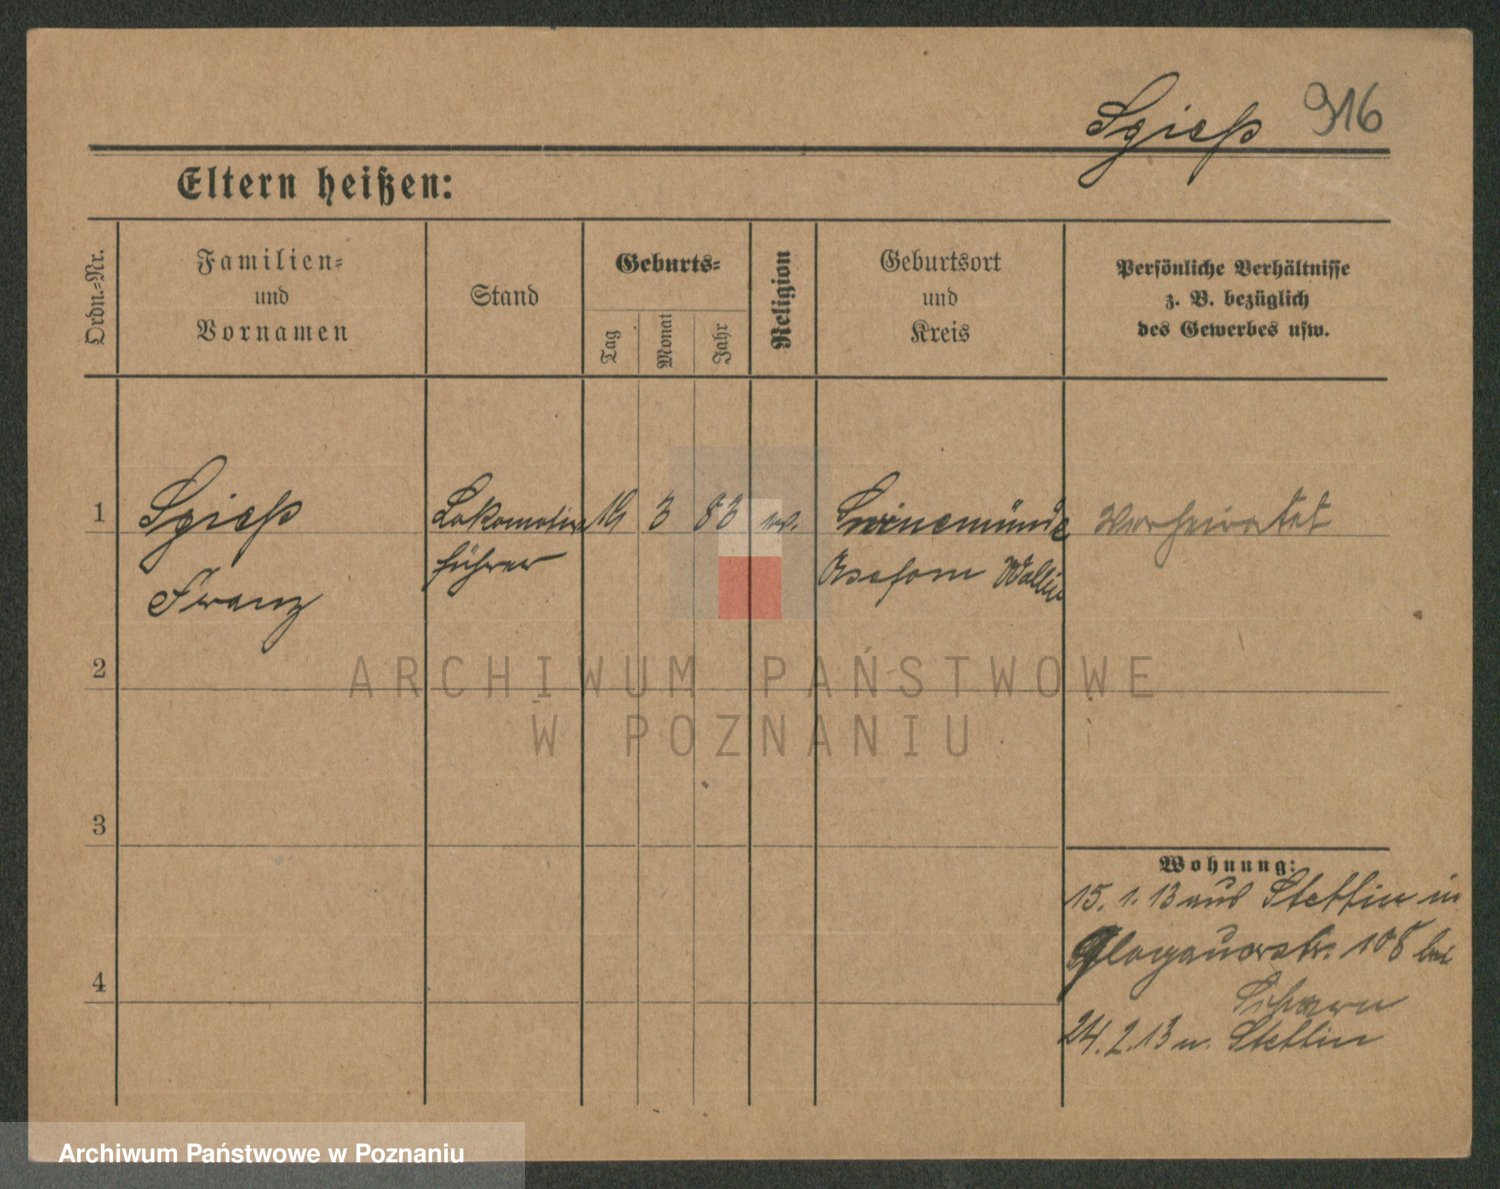 Spieß 916
Eltern heißen:
Ordn.-Nr.
Familien-
und
Vornamen
Stand
Geburts-
Tag
Monat
Jahr
Religion
Geburtsort
und
Kreis
Persönliche Verhältnisse
z. B. bezüglich
des Gewerbes usw.
1
Spieß
Franz
Lokomotiv
führer
19 3 83
Swinemünde
Usedom Wollin
Verheiratet
2
3
4
Wohnung:
15. 1. 13 aus Stettin in
Glogauerstr. 108 bei
24. 2. 13 n. Stettin
ARCHIWUM PAŃSTWOWE
W POZNANIU
Archiwum Państwowe w Poznaniu